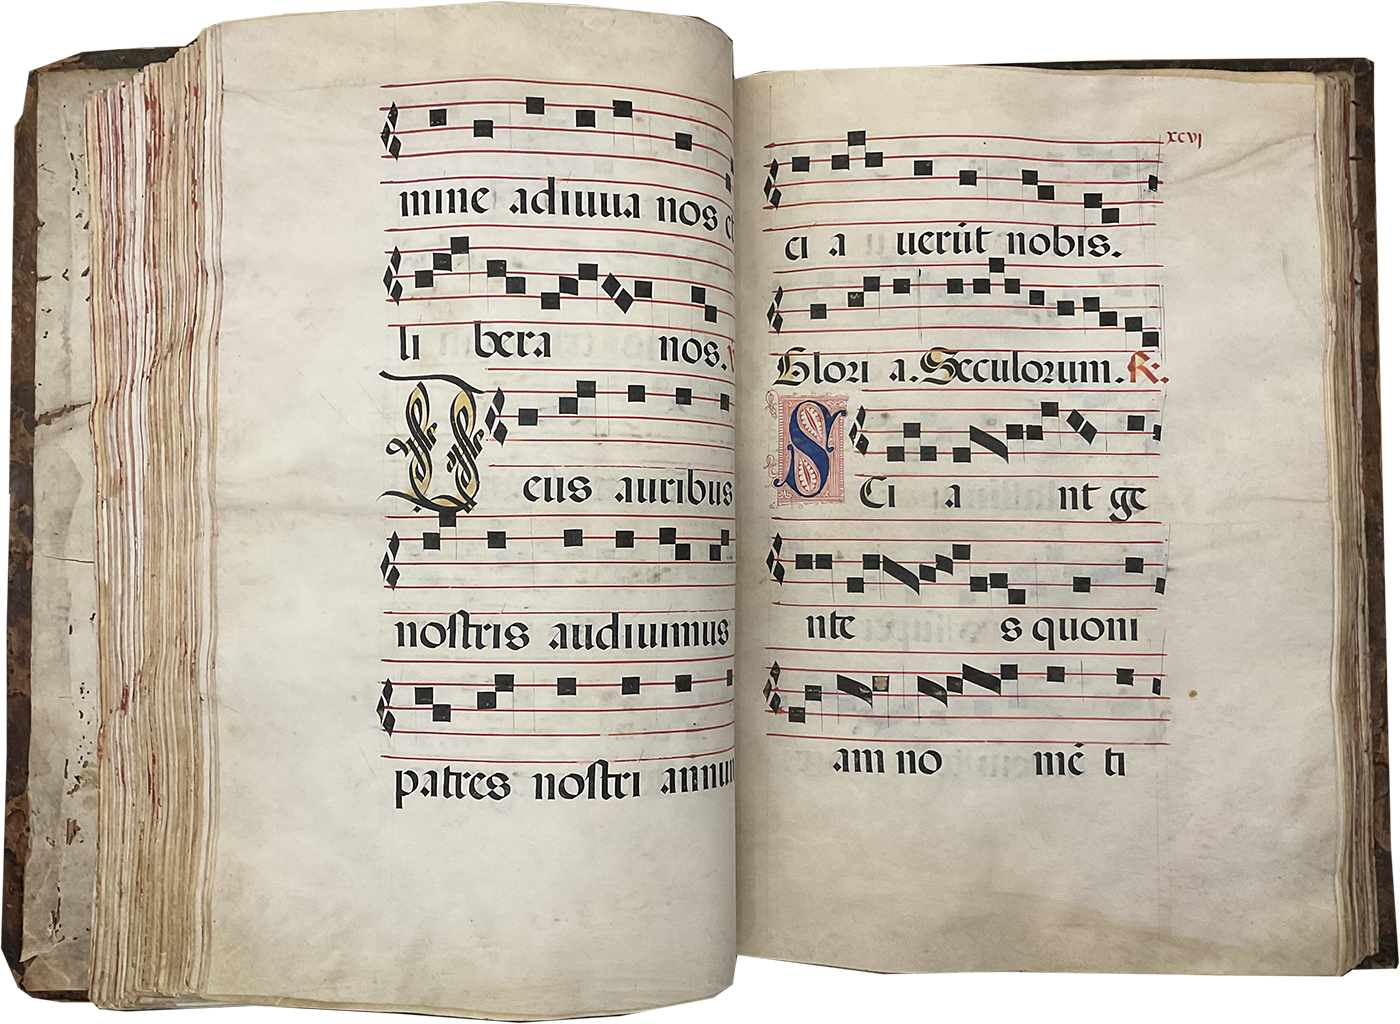 mine adiuua nos
li bera nos.
Deus auribus
nostris audiuimus
patres nostri
xcvi
ci a uerūt nobis.
Glori a. Seculorum. ℟.
SCi a nt ge
nte s quoni
am no mē ti